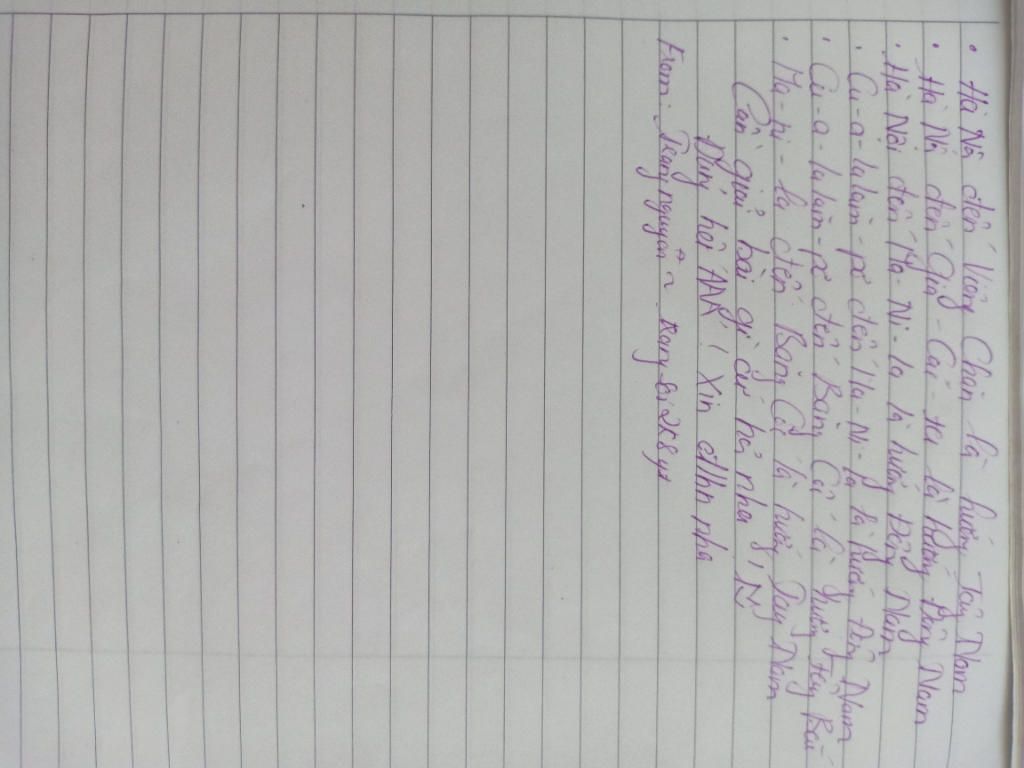 · Hà Nội đến Viêng Chăn là hướng Tây Nam
· Hà Nội đến Gia-Các-ta là Hướng Đông Nam
· Hà Nội đến Ma-Ni-la là hướng Đông Nam
· Cu-a-lalăm-pơ đến Ma-Ni-la là Hướng Đông Nam
· Cu-a-lalăm-pơ đến Băng Cốc là Hướng Tây Bắc
· Ma-ni-la đến Băng Cốc là hướng Tây Nam
Cần giải bài gì cứ hỏi nha
Đúng hết Ạ! Xin ctlhn nha
From: